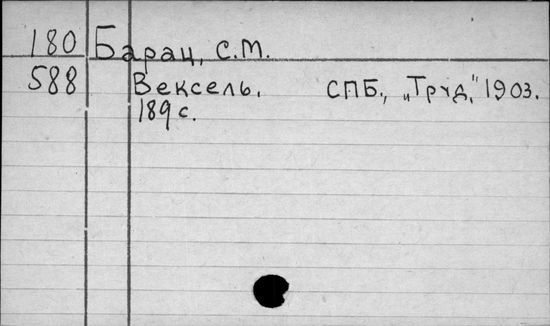 180 Барац, С.М.
588 Вексель. СПБ., „Труд," 1903.
189 с.